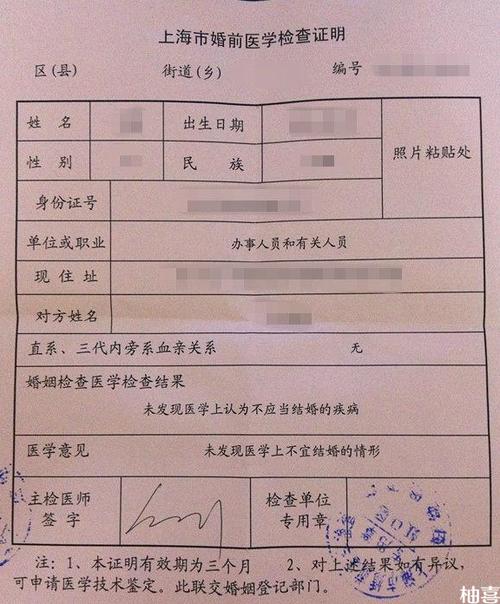 上海市婚前医学检查证明
区(县) 街道(乡) 编号
姓名 出生日期 照片粘贴处
性别 民族
身份证号
单位或职业 办事人员和有关人员
现住址
对方姓名
直系、三代内旁系血亲关系 无
婚姻检查医学检查结果
未发现医学上认为不应当结婚的疾病
医学意见 未发现医学上不宜结婚的情形
主检医师 检查单位
签字 专用章
注:1、本证明有效期为三个月 2、对上述结果如有异议,
可申请医学技术鉴定。此联交婚姻登记部门。
柚喜